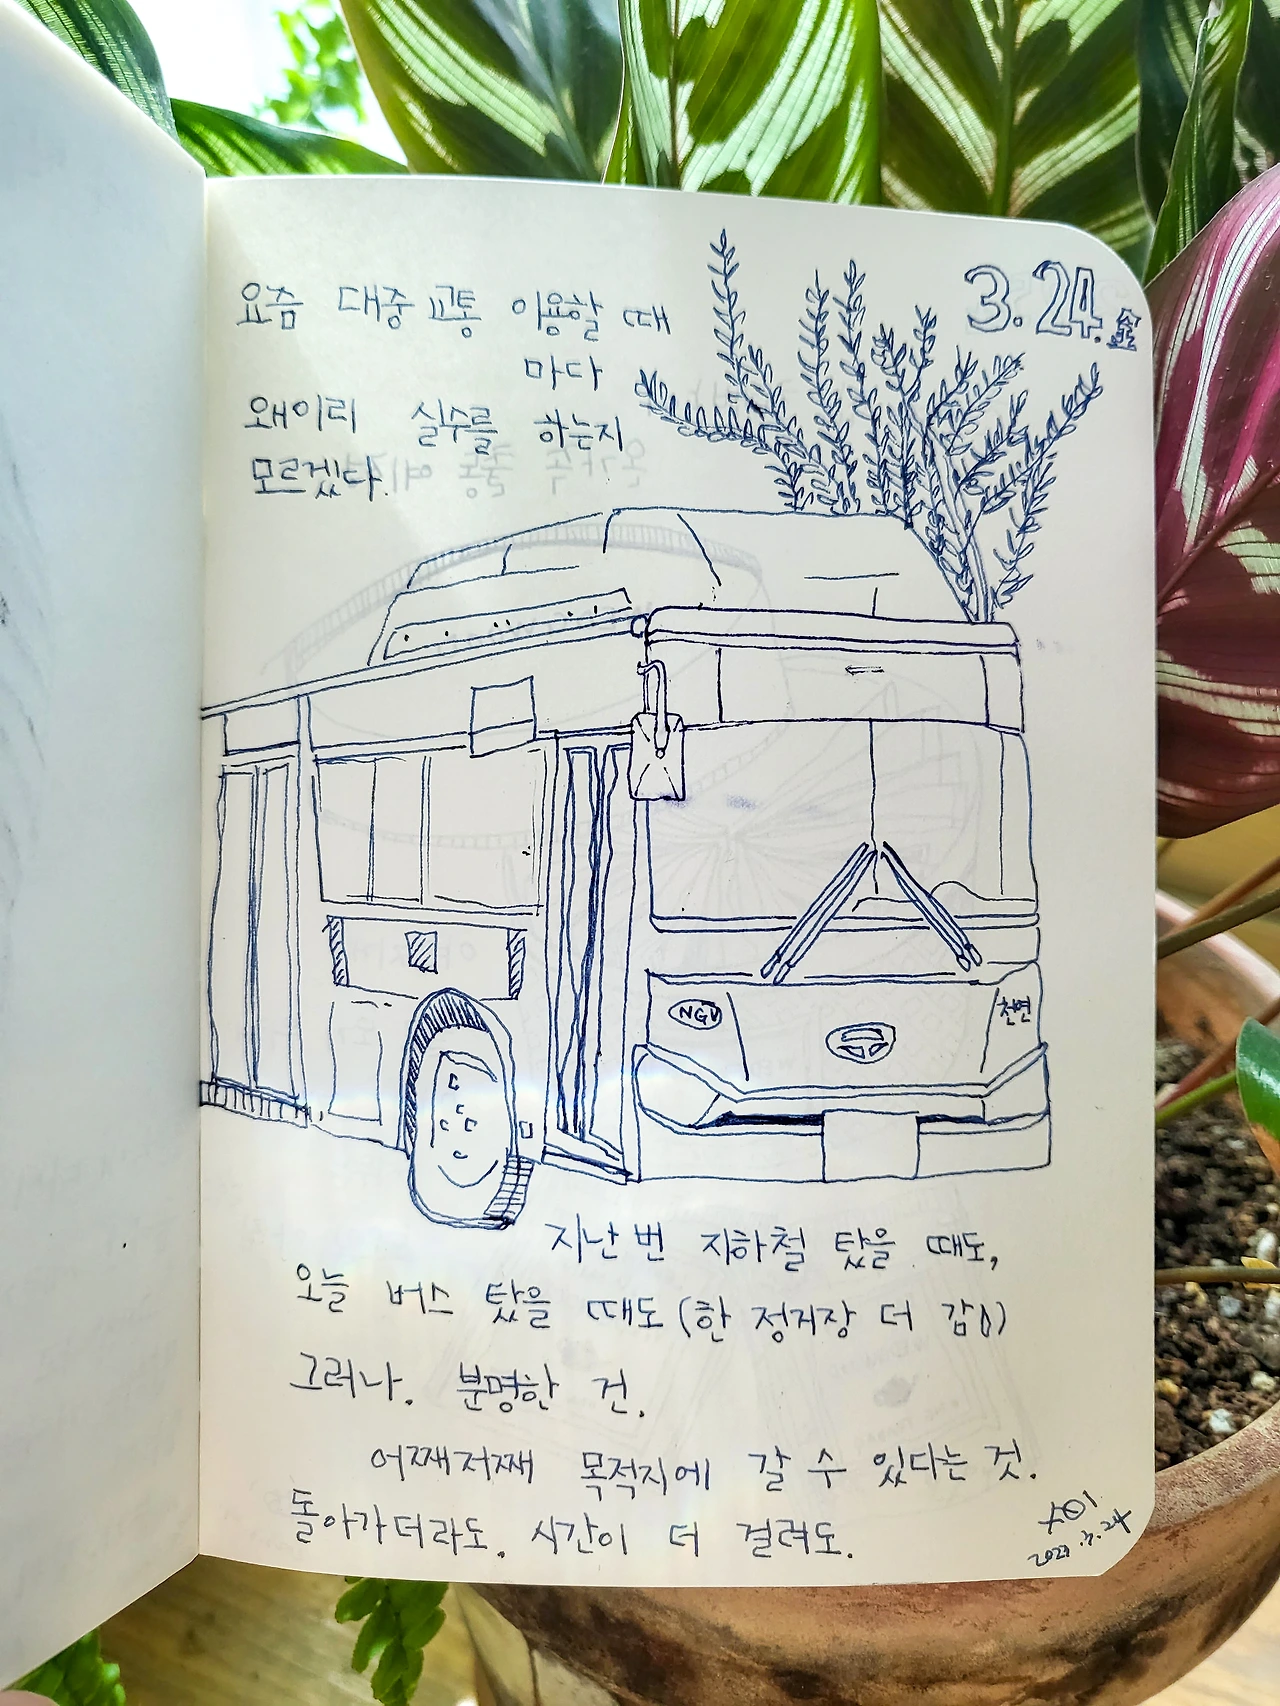 3.24. 金
요즘 대중교통 이용할 때
마다
왜이리 실수를 하는지
모르겠다.
NGV
천연
지난번 지하철 탔을 때도,
오늘 버스 탔을 때도 (한 정거장 더 감)
그러나. 분명한 건.
어째저째 목적지에 갈 수 있다는 것.
돌아가더라도. 시간이 더 걸려도.
3.24